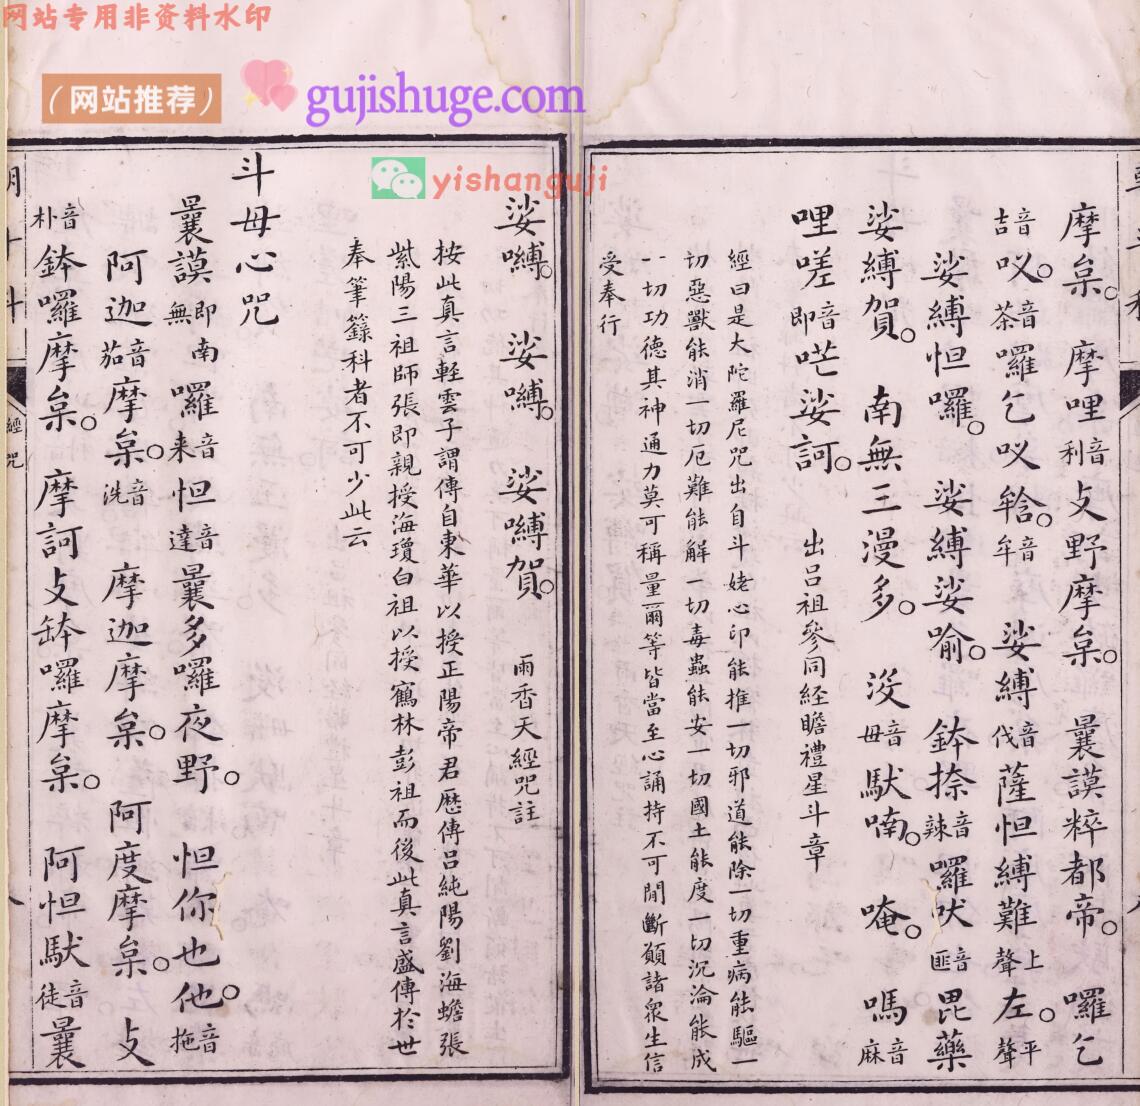 网站专用非资料水印
(网站推荐)
gujishuge.com
yishanguji
摩枲。摩哩音利攴野摩枲。曩謨粹都帝。囉乞
音吉㕹。音茶囉乞㕹䅰。音牟娑縛音伐薩怛縛難上聲左。平聲
娑縛怛囉。娑縛娑喻。鉢捺音辣囉吠音匪毘藥
娑縛賀。南無三漫多。沒音毋馱喃。唵。嗎音麻
哩嗟音即吂娑訶。出呂祖參同經瞻禮星斗章
經曰是大陀羅尼咒出自斗姥心印能推一切邪道能除一切重病能驅一
切惡獸能消一切厄難能解一切毒蟲能安一切國土能度一切沉淪能成
一切功德其神通力莫可稱量爾等皆當至心誦持不可間斷願諸衆生信
受奉行
娑嚩。娑嚩。娑嚩賀。雨香天經咒註
按此真言輕雲子謂傳自東華以授正陽帝君歷傳呂純陽劉海蟾張
紫陽三祖師張即親授海瓊白祖以授鶴林彭祖而後此真言盛傳於世
奉筆籙科者不可少此云
斗母心咒
曩謨即南無囉音来怛音達曩多囉夜野。怛你也他。音拖
阿迦音茄摩枲。音洗摩迦摩枲。阿度摩枲。攴
音朴鉢囉摩枲。摩訶攴鉢囉摩枲。阿怛馱音徒曩
經咒